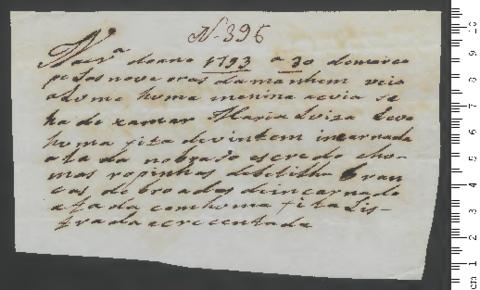 N. 396
Na era do ano 1793 a 30 de março
pelas nove oras da manhem veio
a lume huma menina a coal se
ha de xamar Maria Luiza Levo
huma fita de vintem incarnada
atada no braso escredo e hu-
mas ropinhas de bililho bran
cas de broados de incarnado
atada com huma fita Lis-
trada acrecentada
cm 1 2 3 4 5 6 7 8 9 10